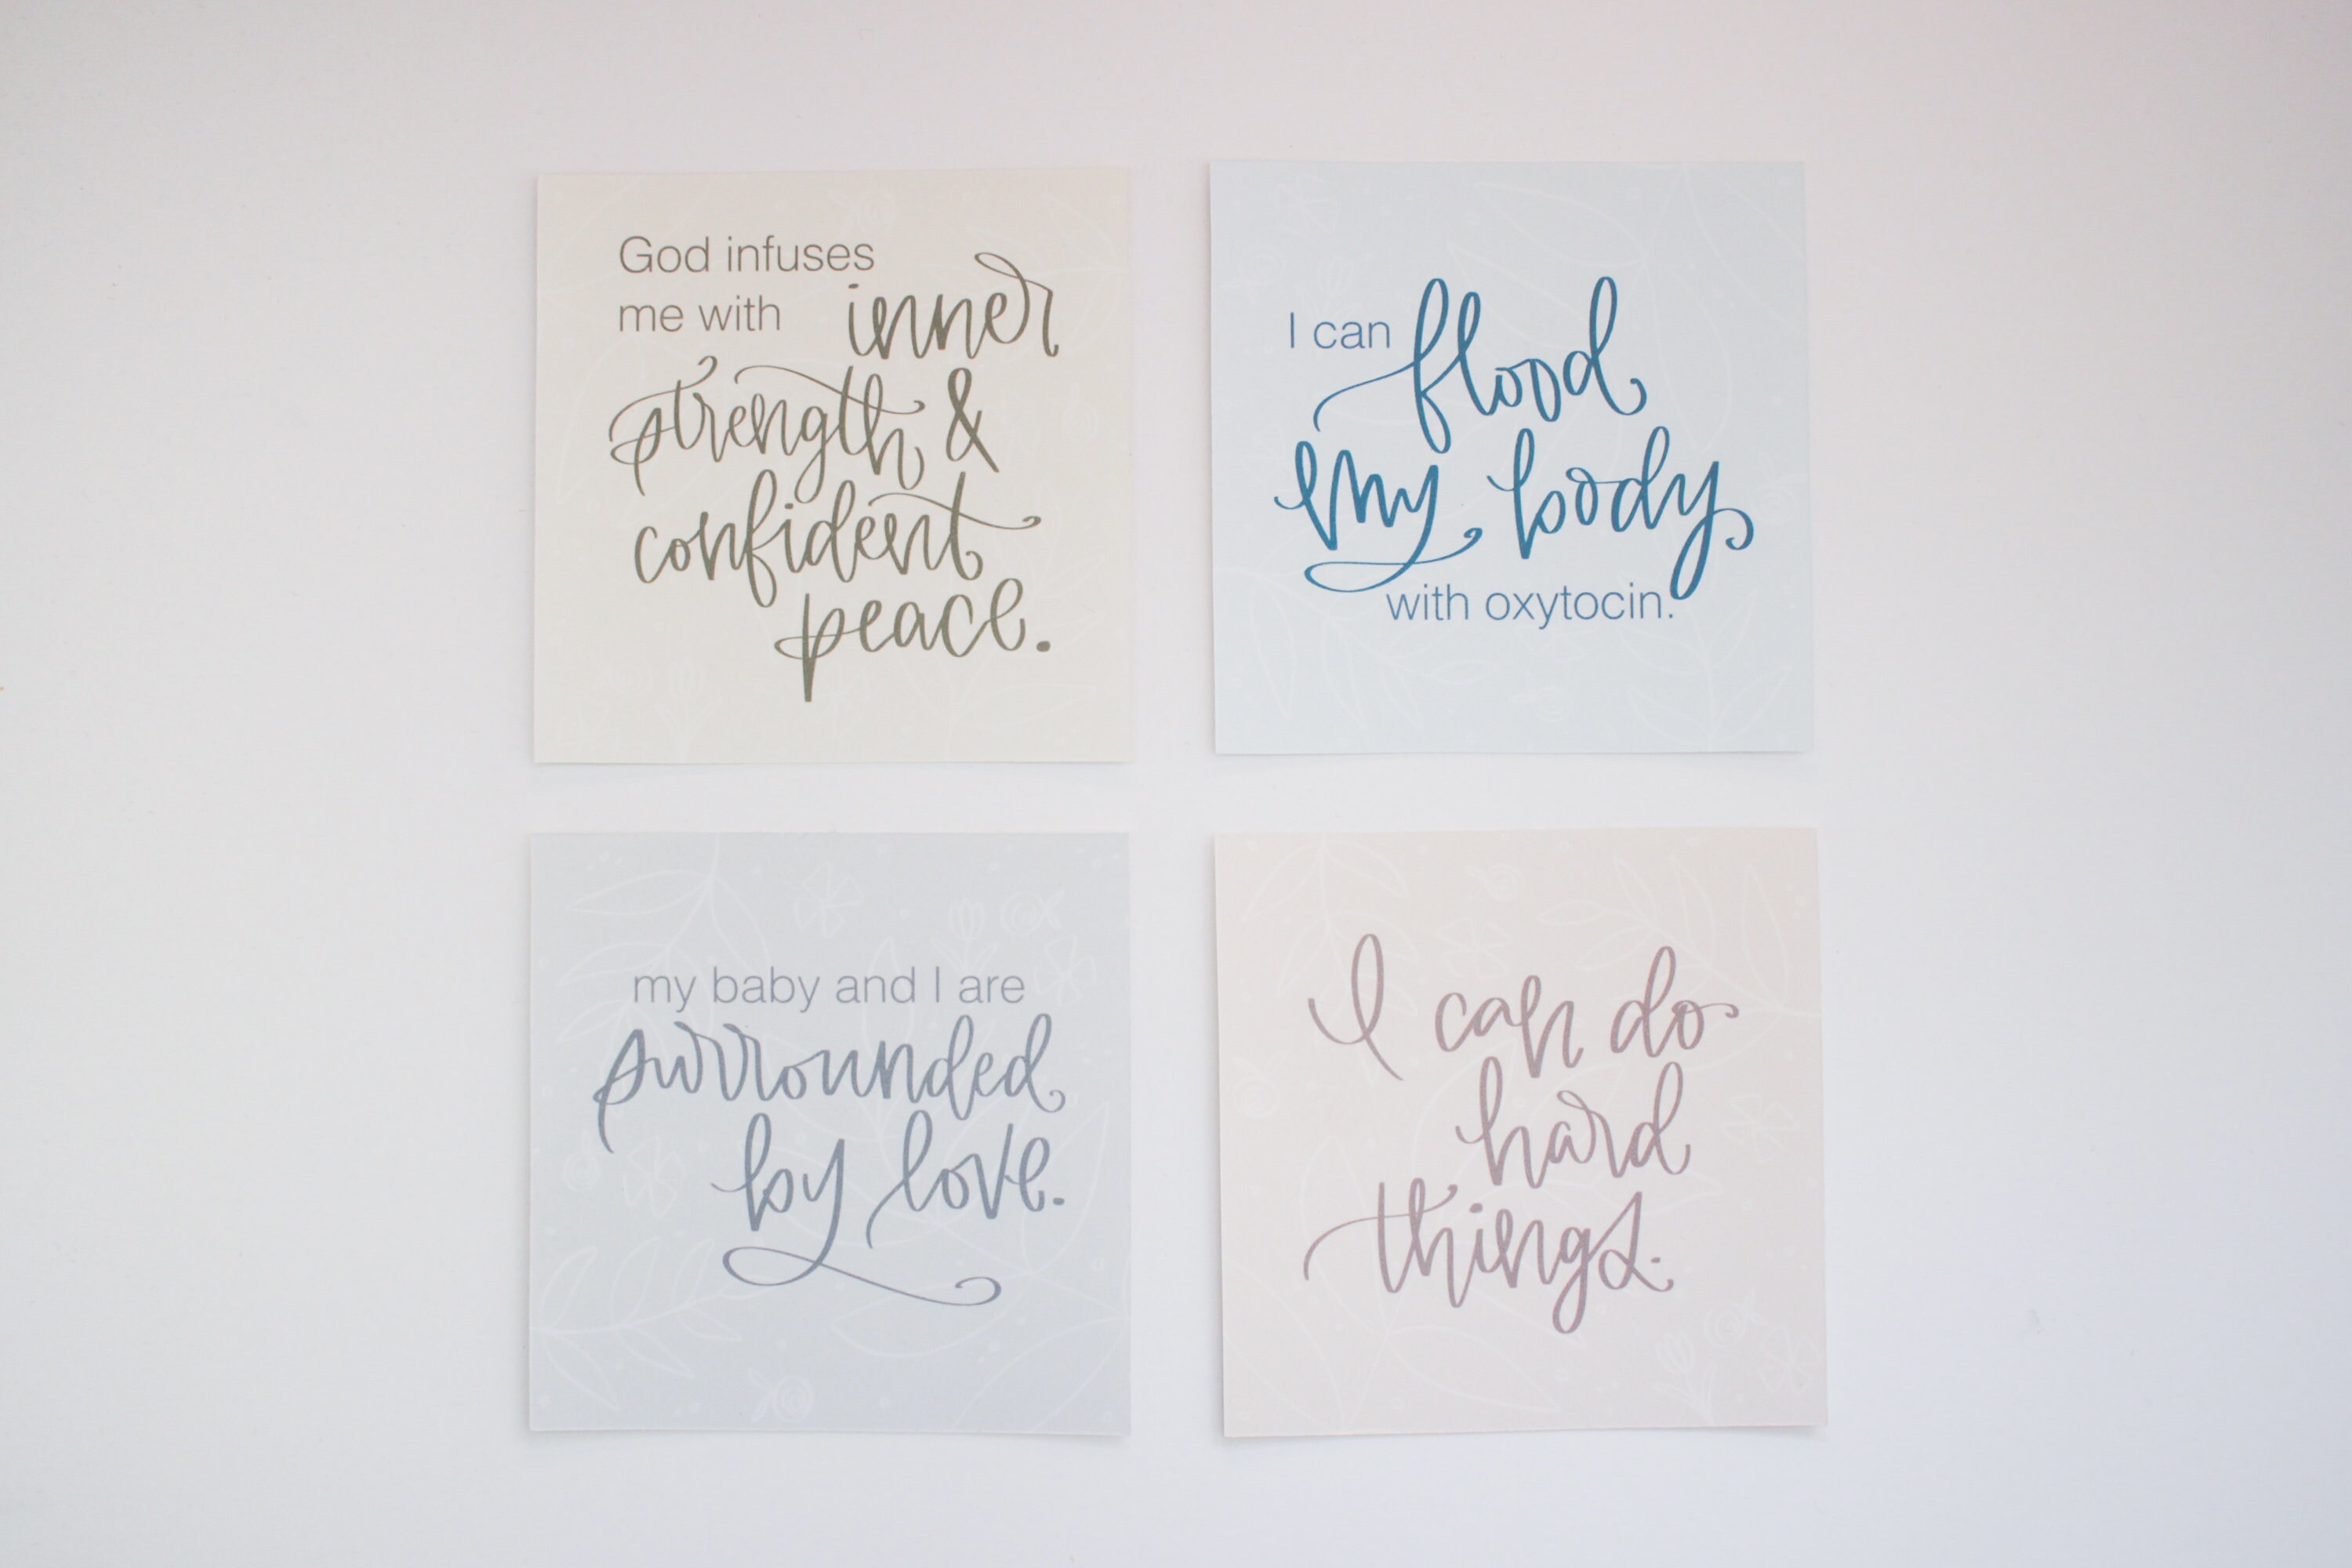 God infuses
me with inner
strength &
confident
peace.
I can flood
my body
with oxytocin.
my baby and I are
surrounded
by love.
I can do
hard
things.